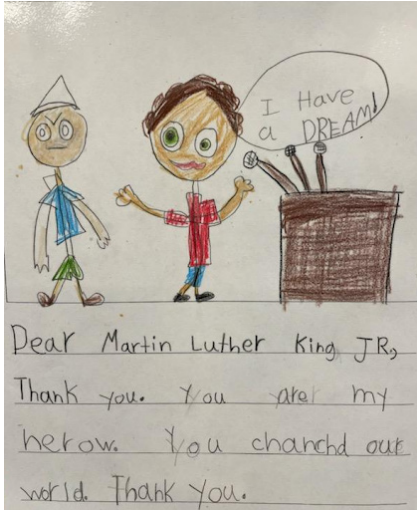 I Have
a DREAM!
Dear Martin Luther King JR,
Thank you. You are my
herow. You chanchd our
world. Thank you.